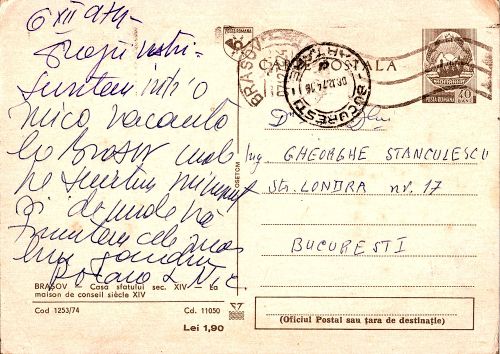 6 XII 974
Dragii noștri
Suntem într'o
mică vacanță
la Brașov unde
ne simțim minunat
și de unde vă
trimitem cele mai
bune gânduri
CARTE POSTALA
POSTA ROMANA
40
BRASOV
BUCURESTI
Ing GHEORGHE STANCULESCU
Str. LONDRA nr. 17
BUCURESTI
BRAȘOV — Casa sfatului sec. XIV — La
maison de conseil siècle XIV
Cod 1253/74 Cd. 11050
Lei 1,90
(Oficiul Postal sau țara de destinație)